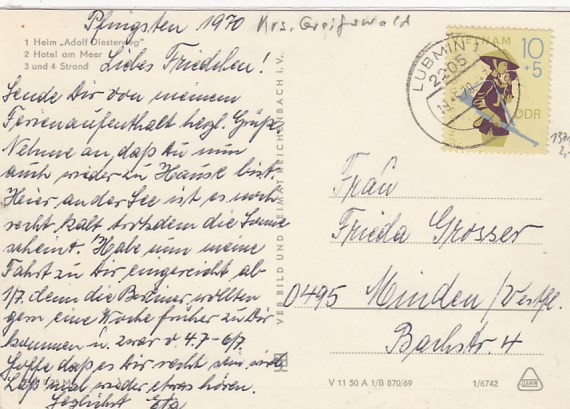 Pfingsten 1970
Krs. Greifswald
1 Heim „Adolf Diesterweg"
2 Hotel am Meer
3 und 4 Strand
Liebes Friedchen!
Sende Dir von meinem
Ferienaufenthalt herzl. Grüße
Nehme an, daß Du nun
auch wieder zu Hause bist.
Hier an der See ist es noch
recht kalt trotzdem die Sonne
scheint. Habe nun meine
Fahrt zu Dir eingereicht ab
1/7. denn die wollten
gern eine Woche früher zu Dir
kommen u. zwar v. 4.7-6/7
Hoffe daß es Dir recht sein wird
Laß mal wieder etwas hören.
Herzlichst
VEB BILD UND HEIMAT REICHENBACH I. V.
LUBMIN 1
2205
VIETNAM
10
+5
DDR
Frau
Frieda Grosser
0495 Minden/Westfl.
Bachstr. 4
V 11 50 A 1/B 870/69
1/6742